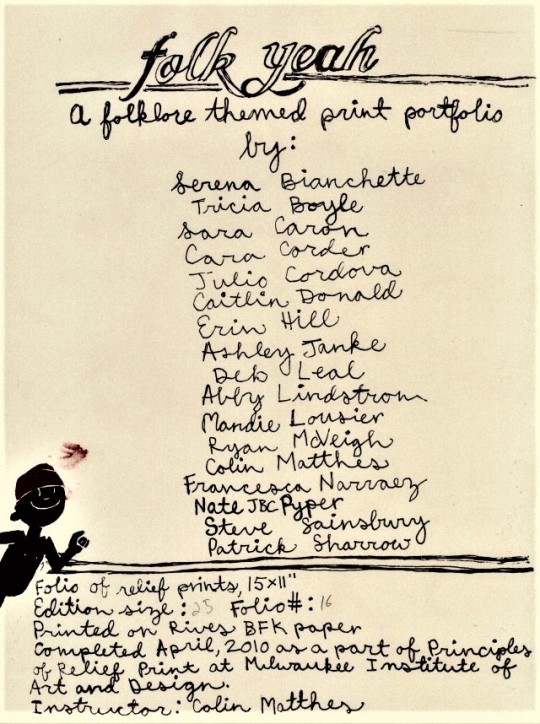 folk yeah
A folklore themed print portfolio
by:
Serena Bianchette
Tricia Boyle
Sara Caron
Cara Corder
Julio Cordova
Caitlin Donald
Erin Hill
Ashley Janke
Deb Leal
Abby Lindstrom
Mandie Lousier
Ryan McVeigh
Colin Matthes
Francesca Narraez
Nate JBC Pyper
Steve Sainsbury
Patrick Sharrow
Folio of relief prints, 15x11"
Edition size: 25 Folio#: 16
Printed on Rives BFK paper
Completed April, 2010 as a part of Principles
of Relief Print at Milwaukee Institute of
Art and Design.
Instructor: Colin Matthes